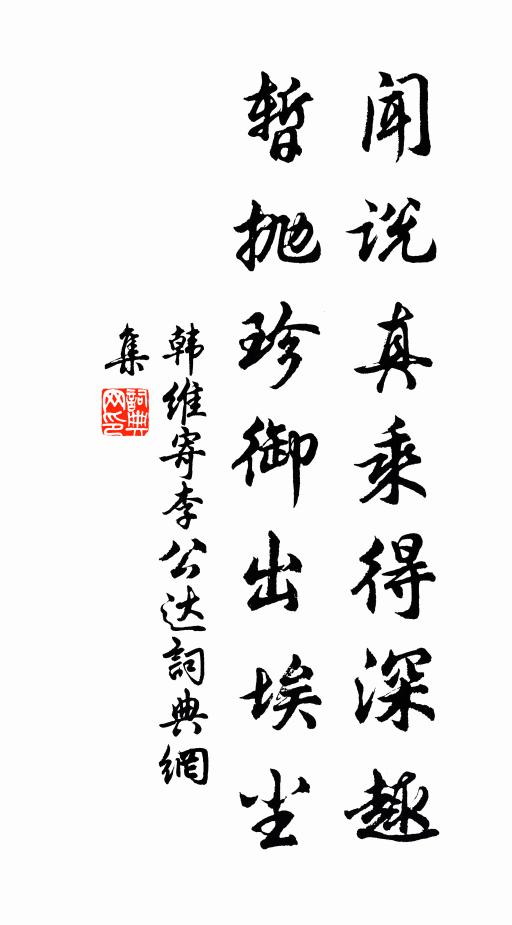 闻说真乘得深趣
暂抛珍御出埃尘
韩维寄李公达詞典網
集
詞典
网印